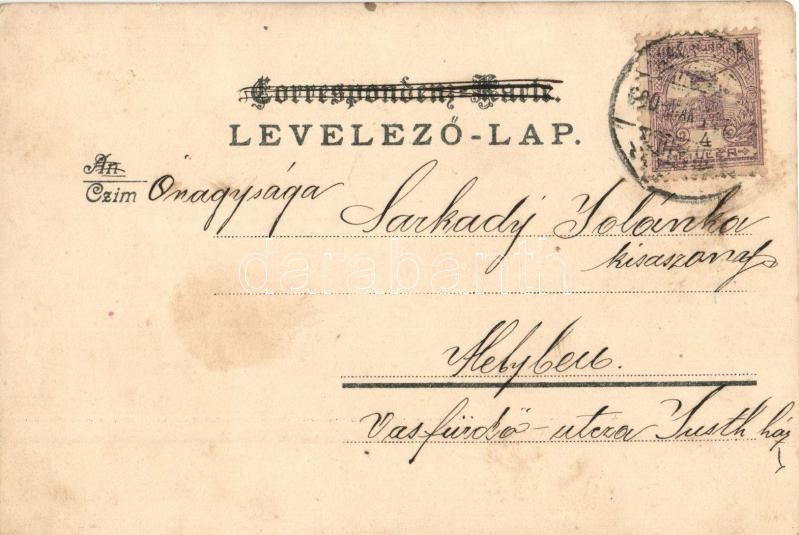 Correspondenz-Karte.
LEVELEZŐ-LAP.
An
Czim Őnagysága
Sarkady Jolánka
kisaszony
Helyben.
Vasfürdő-utcza Justh ház
darabanth
4